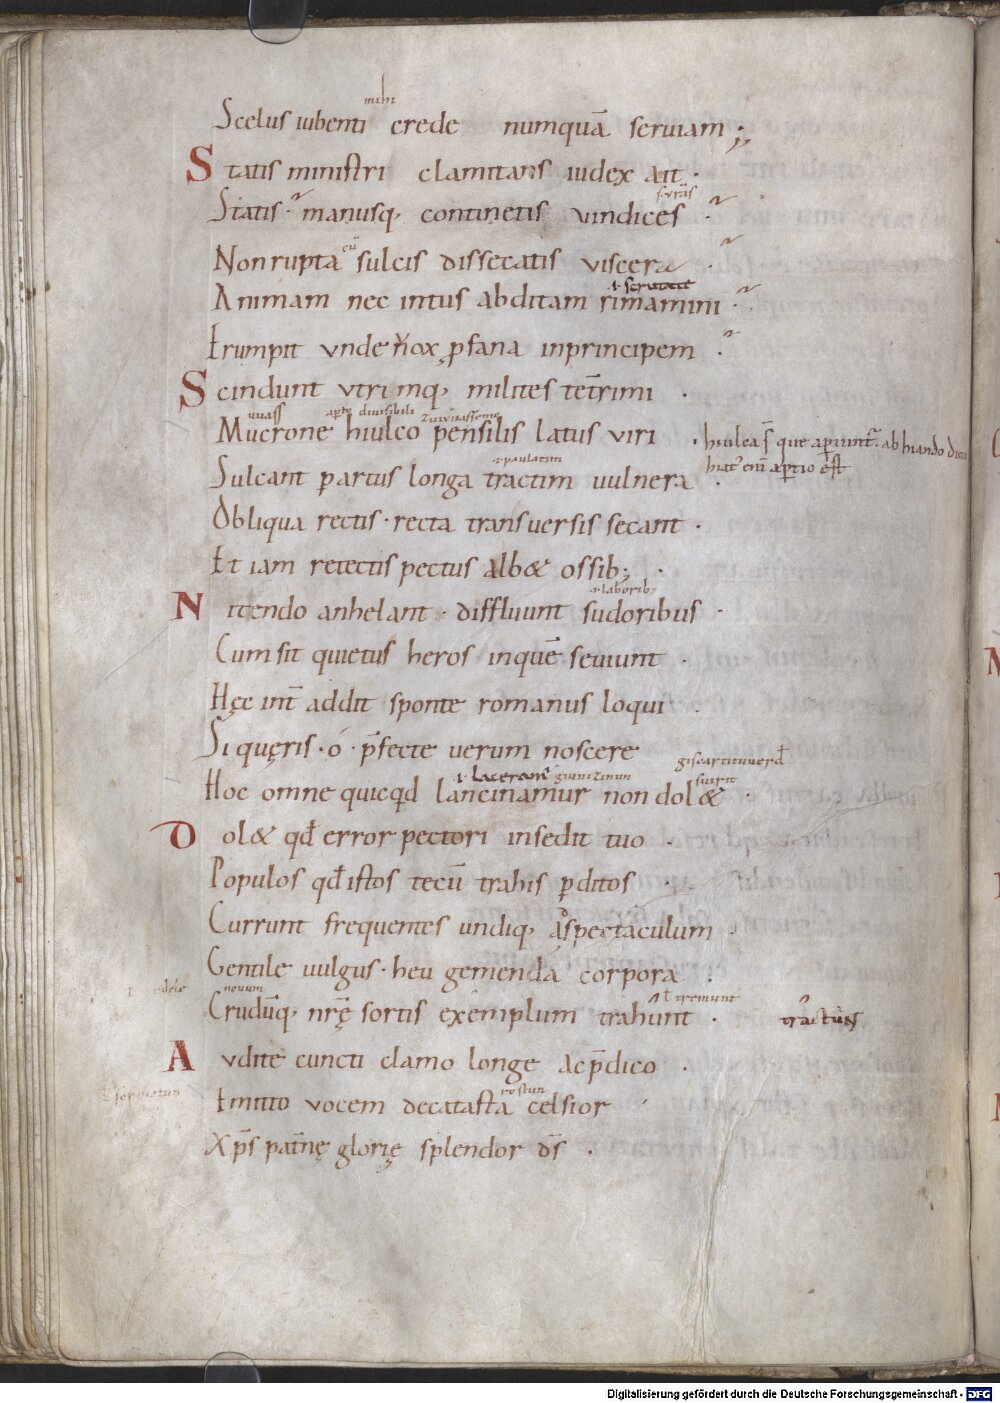 mihi
Scelus iubenti crede numquā seruiam ;
Statis ministri clamitans iudex ait ·
s. urās
Statis · manusq; continetis vindices ·
eū
Non rupta sulcis dissecatis viscera ·
ł scrutate
Animam nec intus abditam rimamini ·
Erumpit vnde uox ꝓfana inprincipem ·
Scindunt vtrimq; milites tet̄rimi ·
uuass aperto diuisibili
Mucrone hiulco pensilis latus viri · hiulca s̄ que aperiunt̄ ab hiando dicta
hiat' eni aꝑtio est
ł paulatim
Sulcant partus longa tractim uulnera ·
Obliqua rectis · recta transuersis secant ·
Et iam retectis pectus albꝫ ossib; ·
ł laborib;
Nitendo anhelant · diffluunt sudoribus ·
Cum sit quietus heros inquē seuiunt ·
Hęc int̄ addit sponte romanus loqui ·
Si quęris · ó · p̄fecte uerum noscere
giscartituuerd
ł lacerant̄
Hoc omne quicqđ lancinamur non dol& ·
Dol& qđ error pectori insedit tuo ·
Populos qđ istos tecū trahis ꝑditos ·
Currunt frequentes undiq; aspectaculum ·
Gentile uulgus · heu gemenda corpora ·
nouum ł tremunt
Crudūq; nr̄ę sortis exemplum trahunt ·
Avdite cuncti clamo longe ac p̄dico ·
Emitto vocem decatasta celsior
Xp̄s patnę glorię splendor d̄s ·
Digitalisierung gefördert durch die Deutsche Forschungsgemeinschaft - DFG